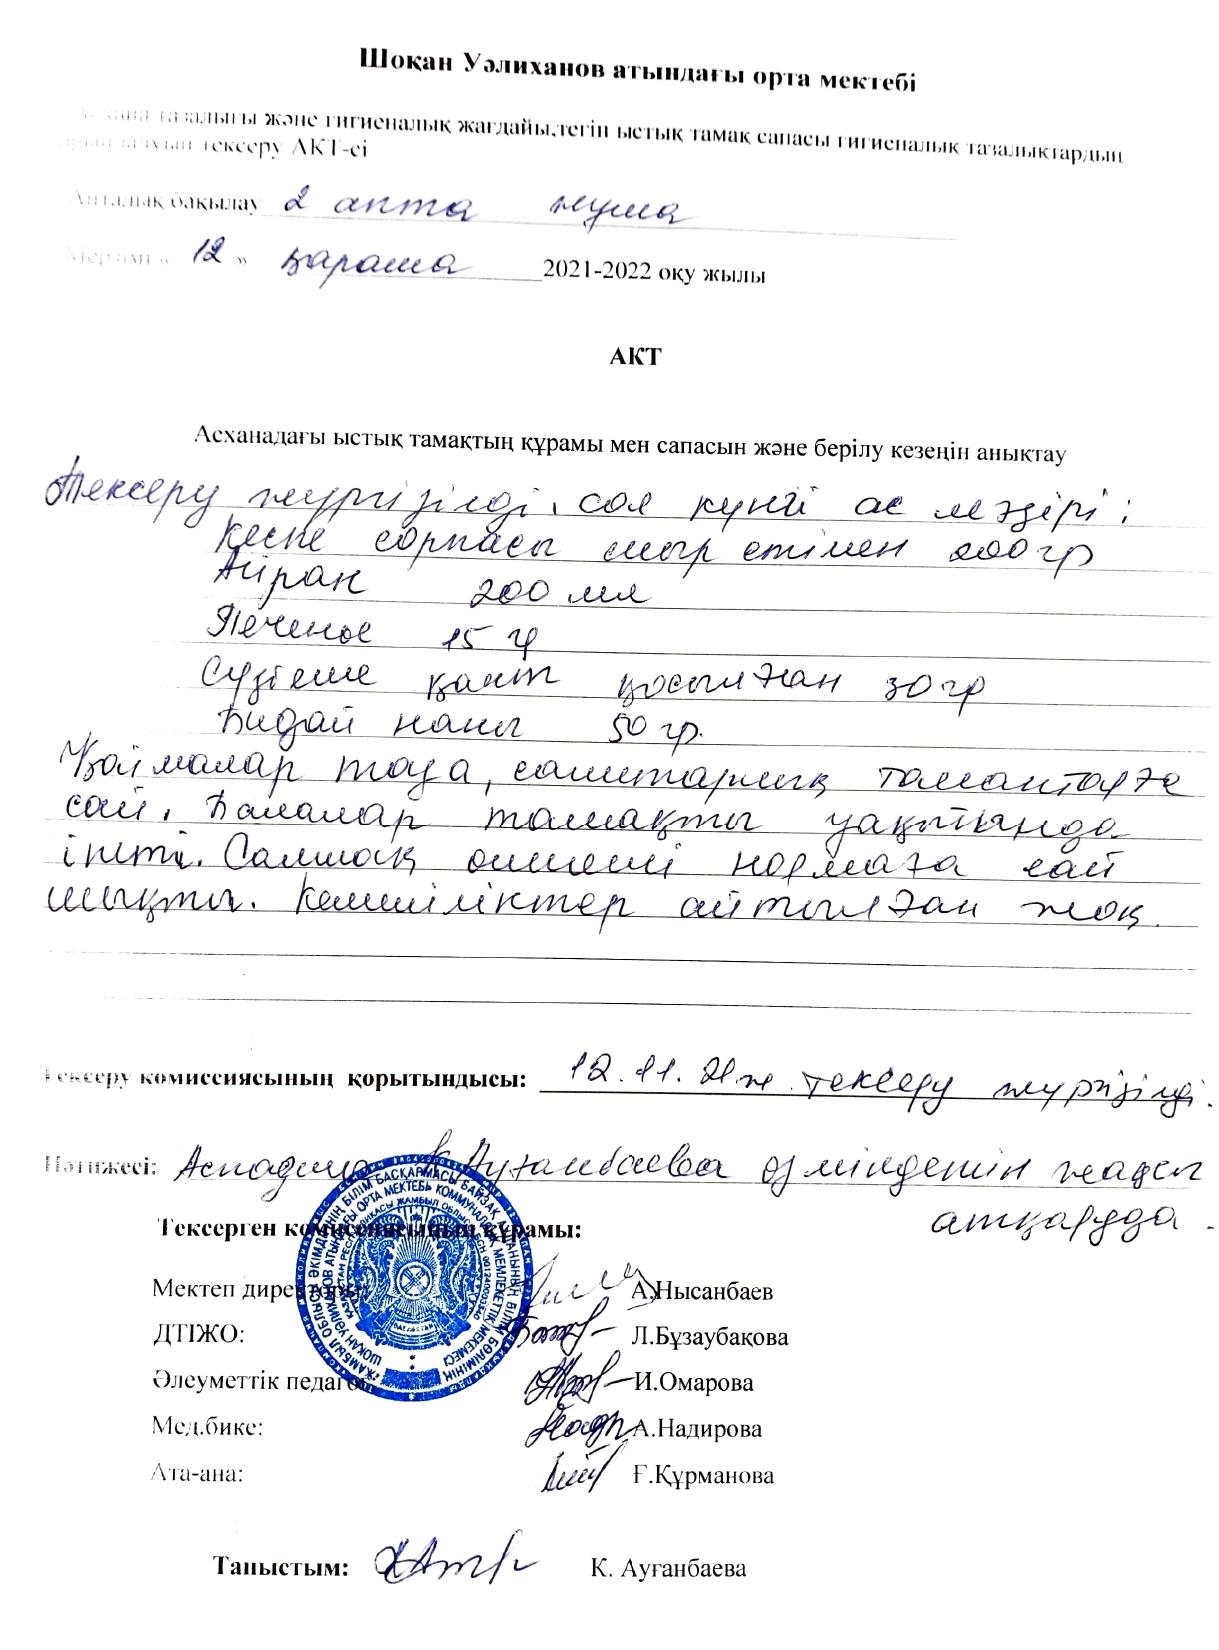 Шоқан Уәлиханов атындағы орта мектебі
Асхана тазалығы және гигиеналық жағдайы,тегін ыстық тамақ сапасы гигиеналық тазалықтардың
тексеру АКТ-сі
Апталық бақылау 2 апта жұма
Мерзімі « 12 » қараша 2021-2022 оқу жылы
АКТ
Асханадағы ыстық тамақтың құрамы мен сапасын және берілу кезеңін анықтау
Тексеру жүргізілді, сол күнгі ас мәзірі:
Кеспе сорпасы сиыр етімен 200 гр
Айран 200 мл
Печенье 15 гр
Сүзбеше қант қосылған 30 гр
Бидай наны 50 гр.
Қоймалар таза, санитарлық талаптарға
сай. Балалар тамақты уақытында
ішті. Салмақ өлшемі нормаға сай
шықты. Кемшіліктер айтылған жоқ.
Тексеру комиссиясының қорытындысы: 12.11.21ж тексеру жүргізілді.
Нәтижесі: Аспазшы К Ауғанбаева өз міндетін жақсы
атқаруда.
Тексерген комиссиясының құрамы:
Мектеп директоры: А.Нысанбаев
ДТІЖО: Л.Бұзаубақова
Әлеуметтік педагог: И.Омарова
Мед.бике: А.Надирова
Ата-ана: Ғ.Құрманова
Таныстым: К. Ауғанбаева